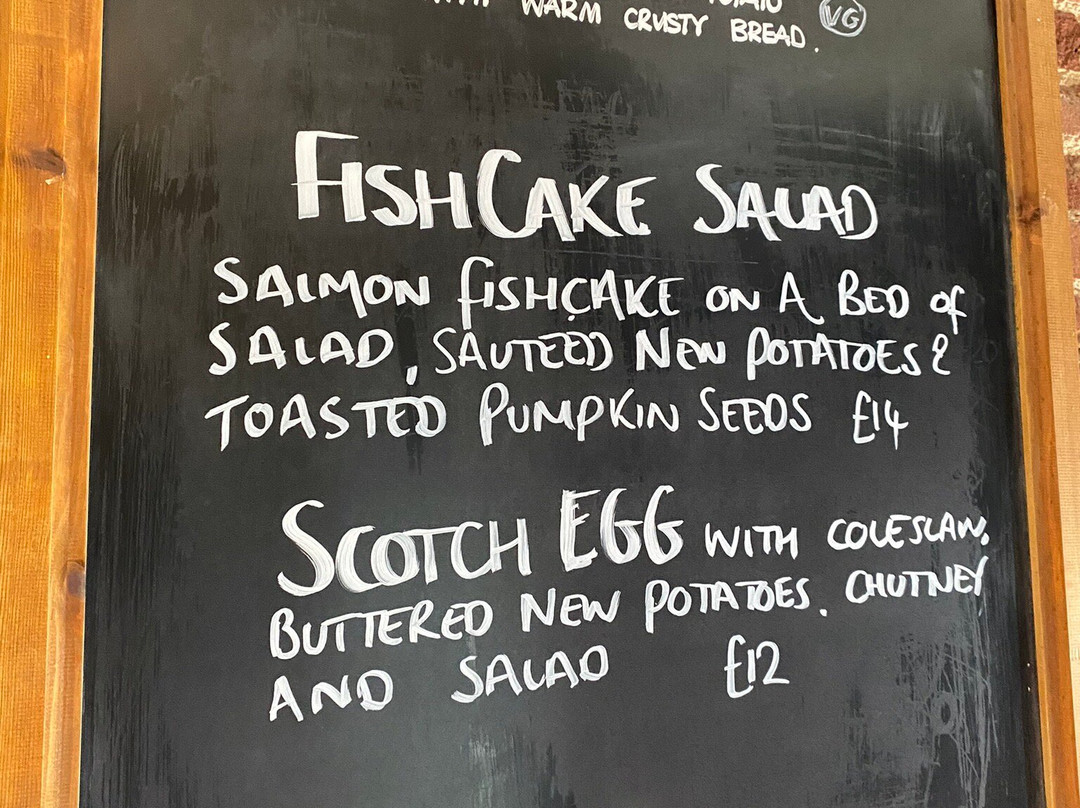 WARM CRUSTY BREAD. VG
FISHCAKE SALAD
SALMON FISHCAKE ON A BED OF
SALAD, SAUTEED NEW POTATOES &
TOASTED PUMPKIN SEEDS £14
SCOTCH EGG WITH COLESLAW,
BUTTERED NEW POTATOES, CHUTNEY
AND SALAD £12